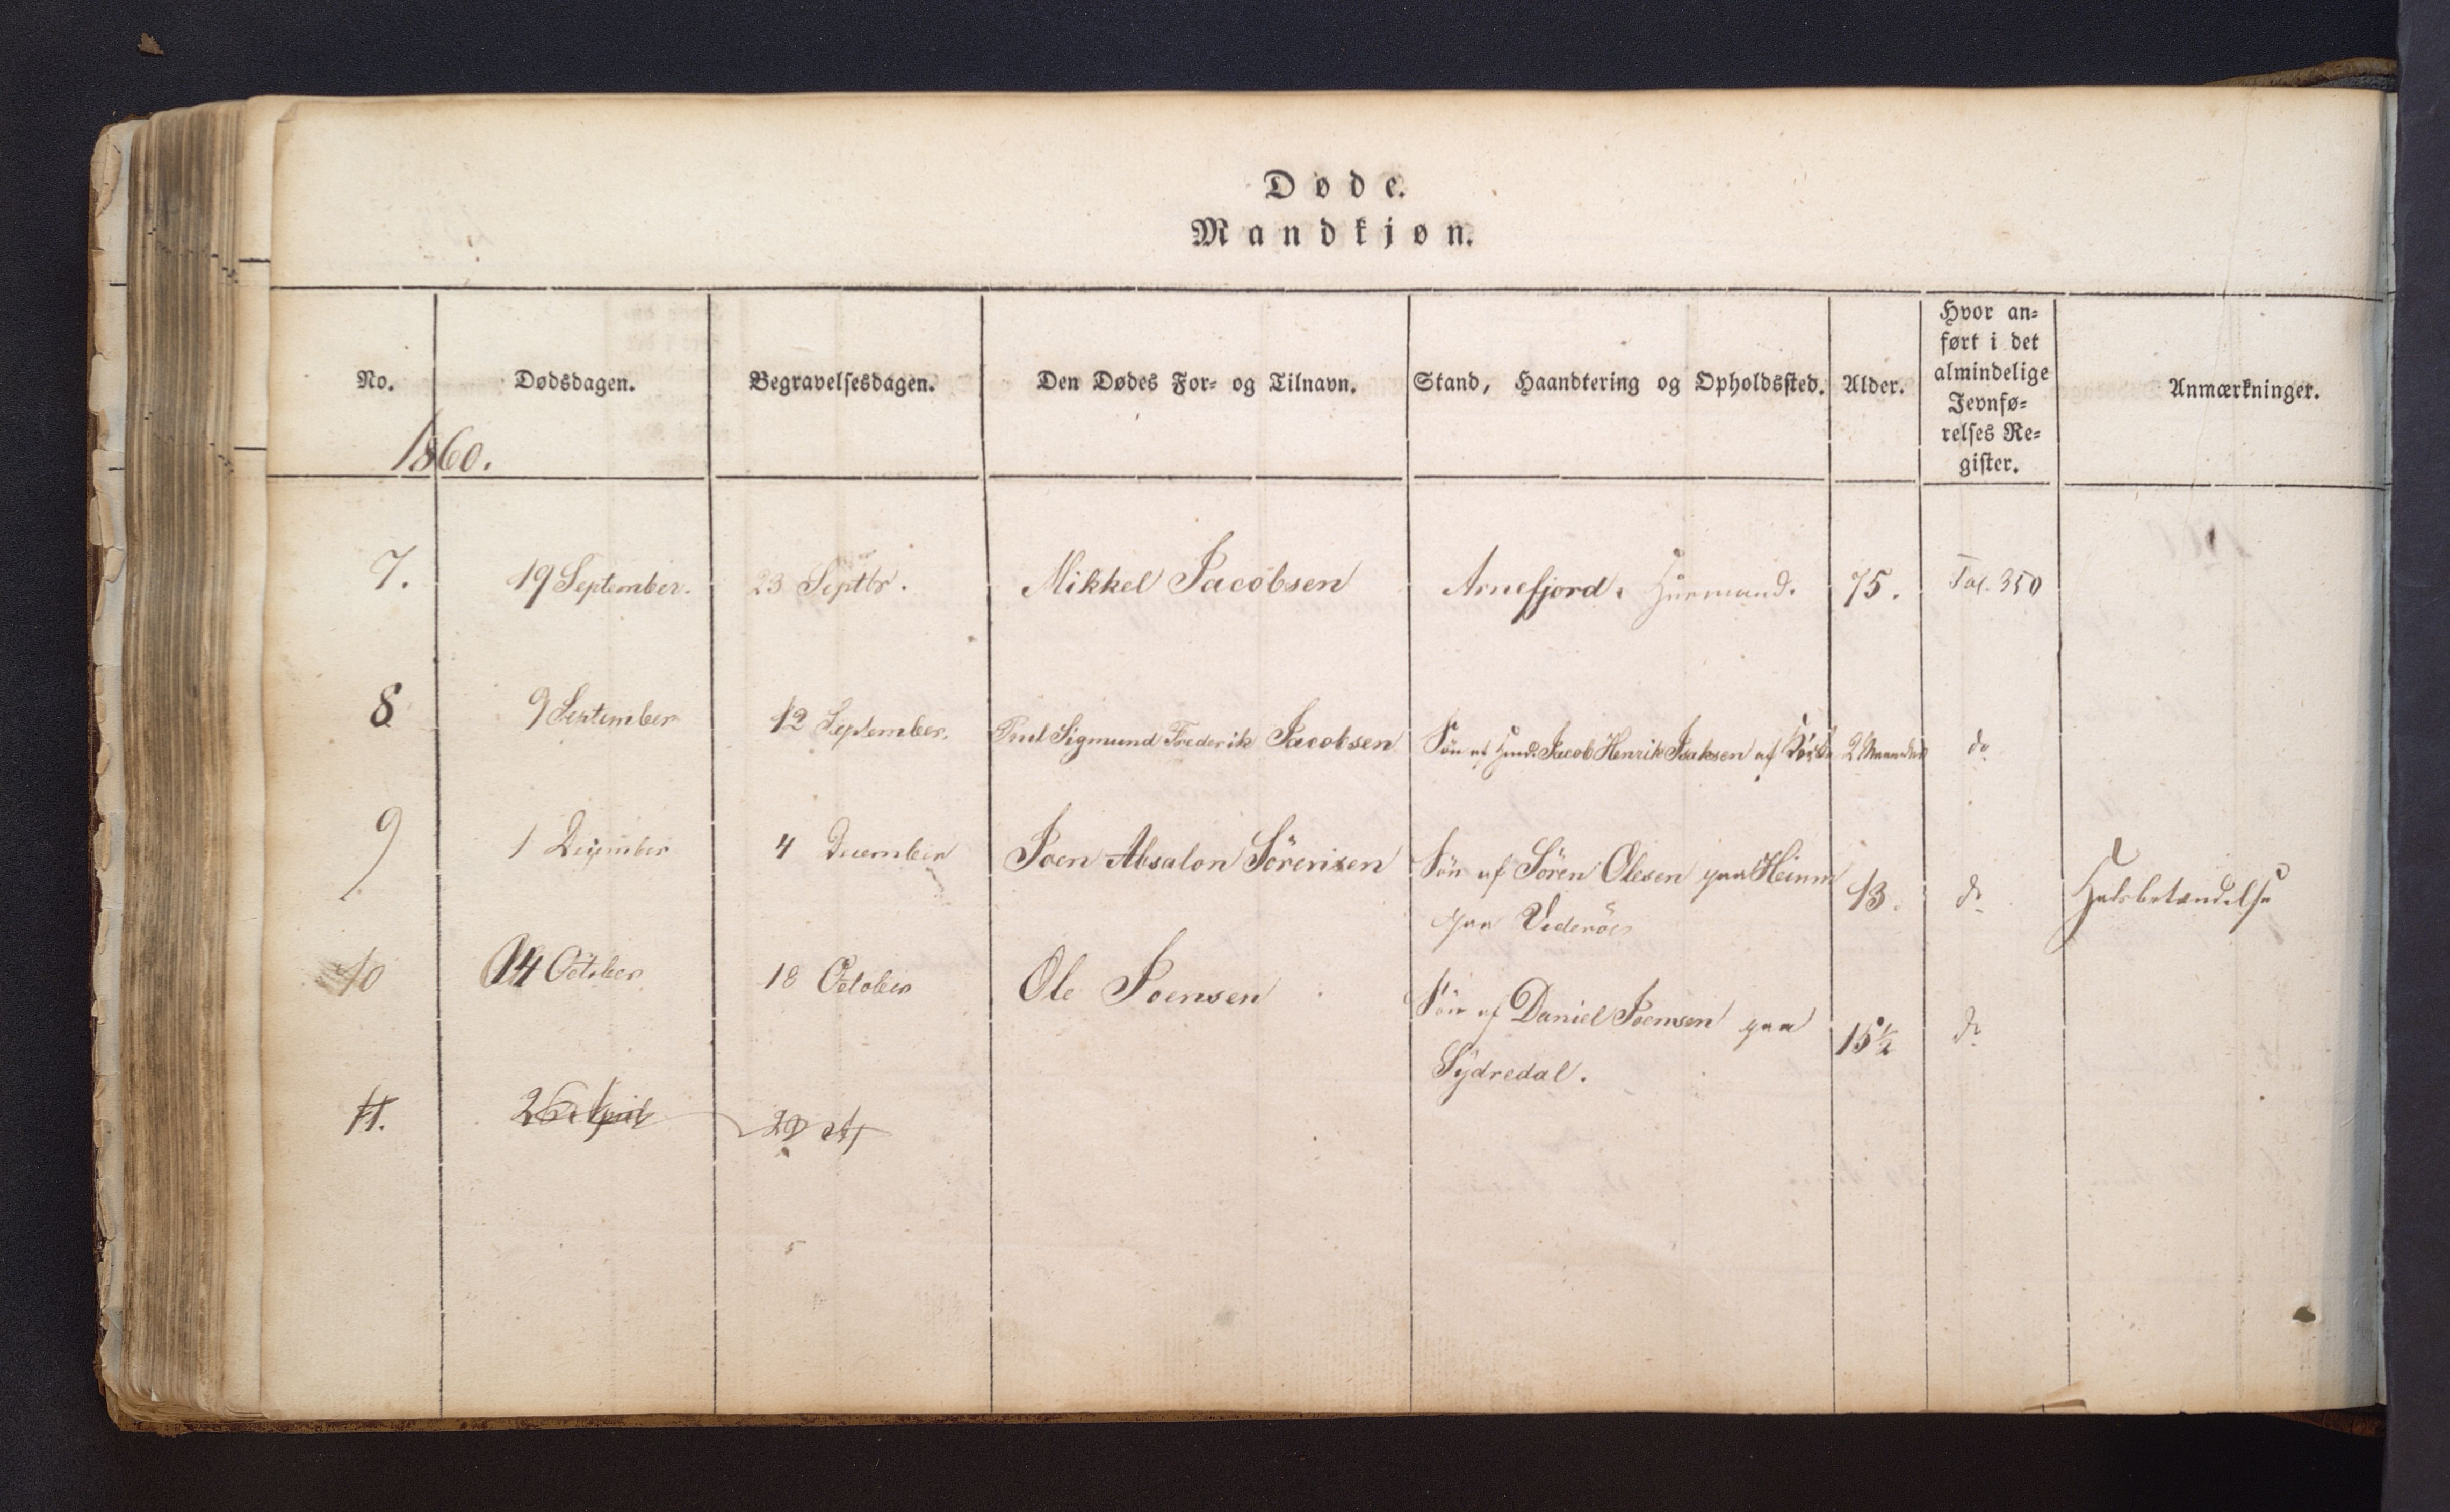 Døde.
Mandkjøn.
No. Dødsdagen. Begravelsesdagen. Den Dødes For- og Tilnavn. Stand, Haandtering og Opholdssted. Alder. Hvor an=
ført i det
almindelige
Jevnfø=
relses Re=
gister. Anmærkninger.
1860.
7. 19 September. 23 Septbr. Mikkel Jacobsen Arnefjord. Huusmand. 75. Tal. 350
8 9 September 12 September. Poul Sigmund Frederik Jacobsen Sön af Jacob Henrik Isaksen af 2 Maaneder do
9 1 December 4 December Joen Absalon Sörensen Sön af Sören Olesen paa
paa Videröe 13. do Halsbetændelse
10 14 October 18 October Ole Joensen Sön af Daniel Joensen paa
Sydredal. 15½ do
11. 26 April 29